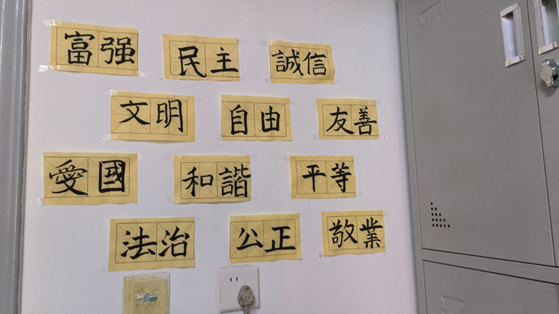 富强 民主 誠信
文明 自由 友善
愛國 和諧 平等
法治 公正 敬業